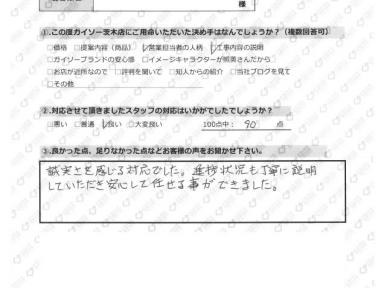 様
①.この度ガイソー茨木店にご用命いただいた決め手はなんでしょうか?(複数回答可)
□価格 □提案内容(商品) ☑営業担当者の人柄 ☑工事内容の説明
□ガイソーブランドの安心感 □イメージキャラクターが照英さんだから
□お店が近所なので □評判を聞いて □知人からの紹介 □当社ブログを見て
□その他
②.対応させて頂きましたスタッフの対応はいかがでしたでしょうか?
□悪い □普通 ☑良い □大変良い 100点中: 90 点
③.良かった点、足りなかった点などお客様の声をお聞かせ下さい。
誠実さを感じる対応でした。進捗状況も丁寧に説明
していただき安心して任せる事ができました。